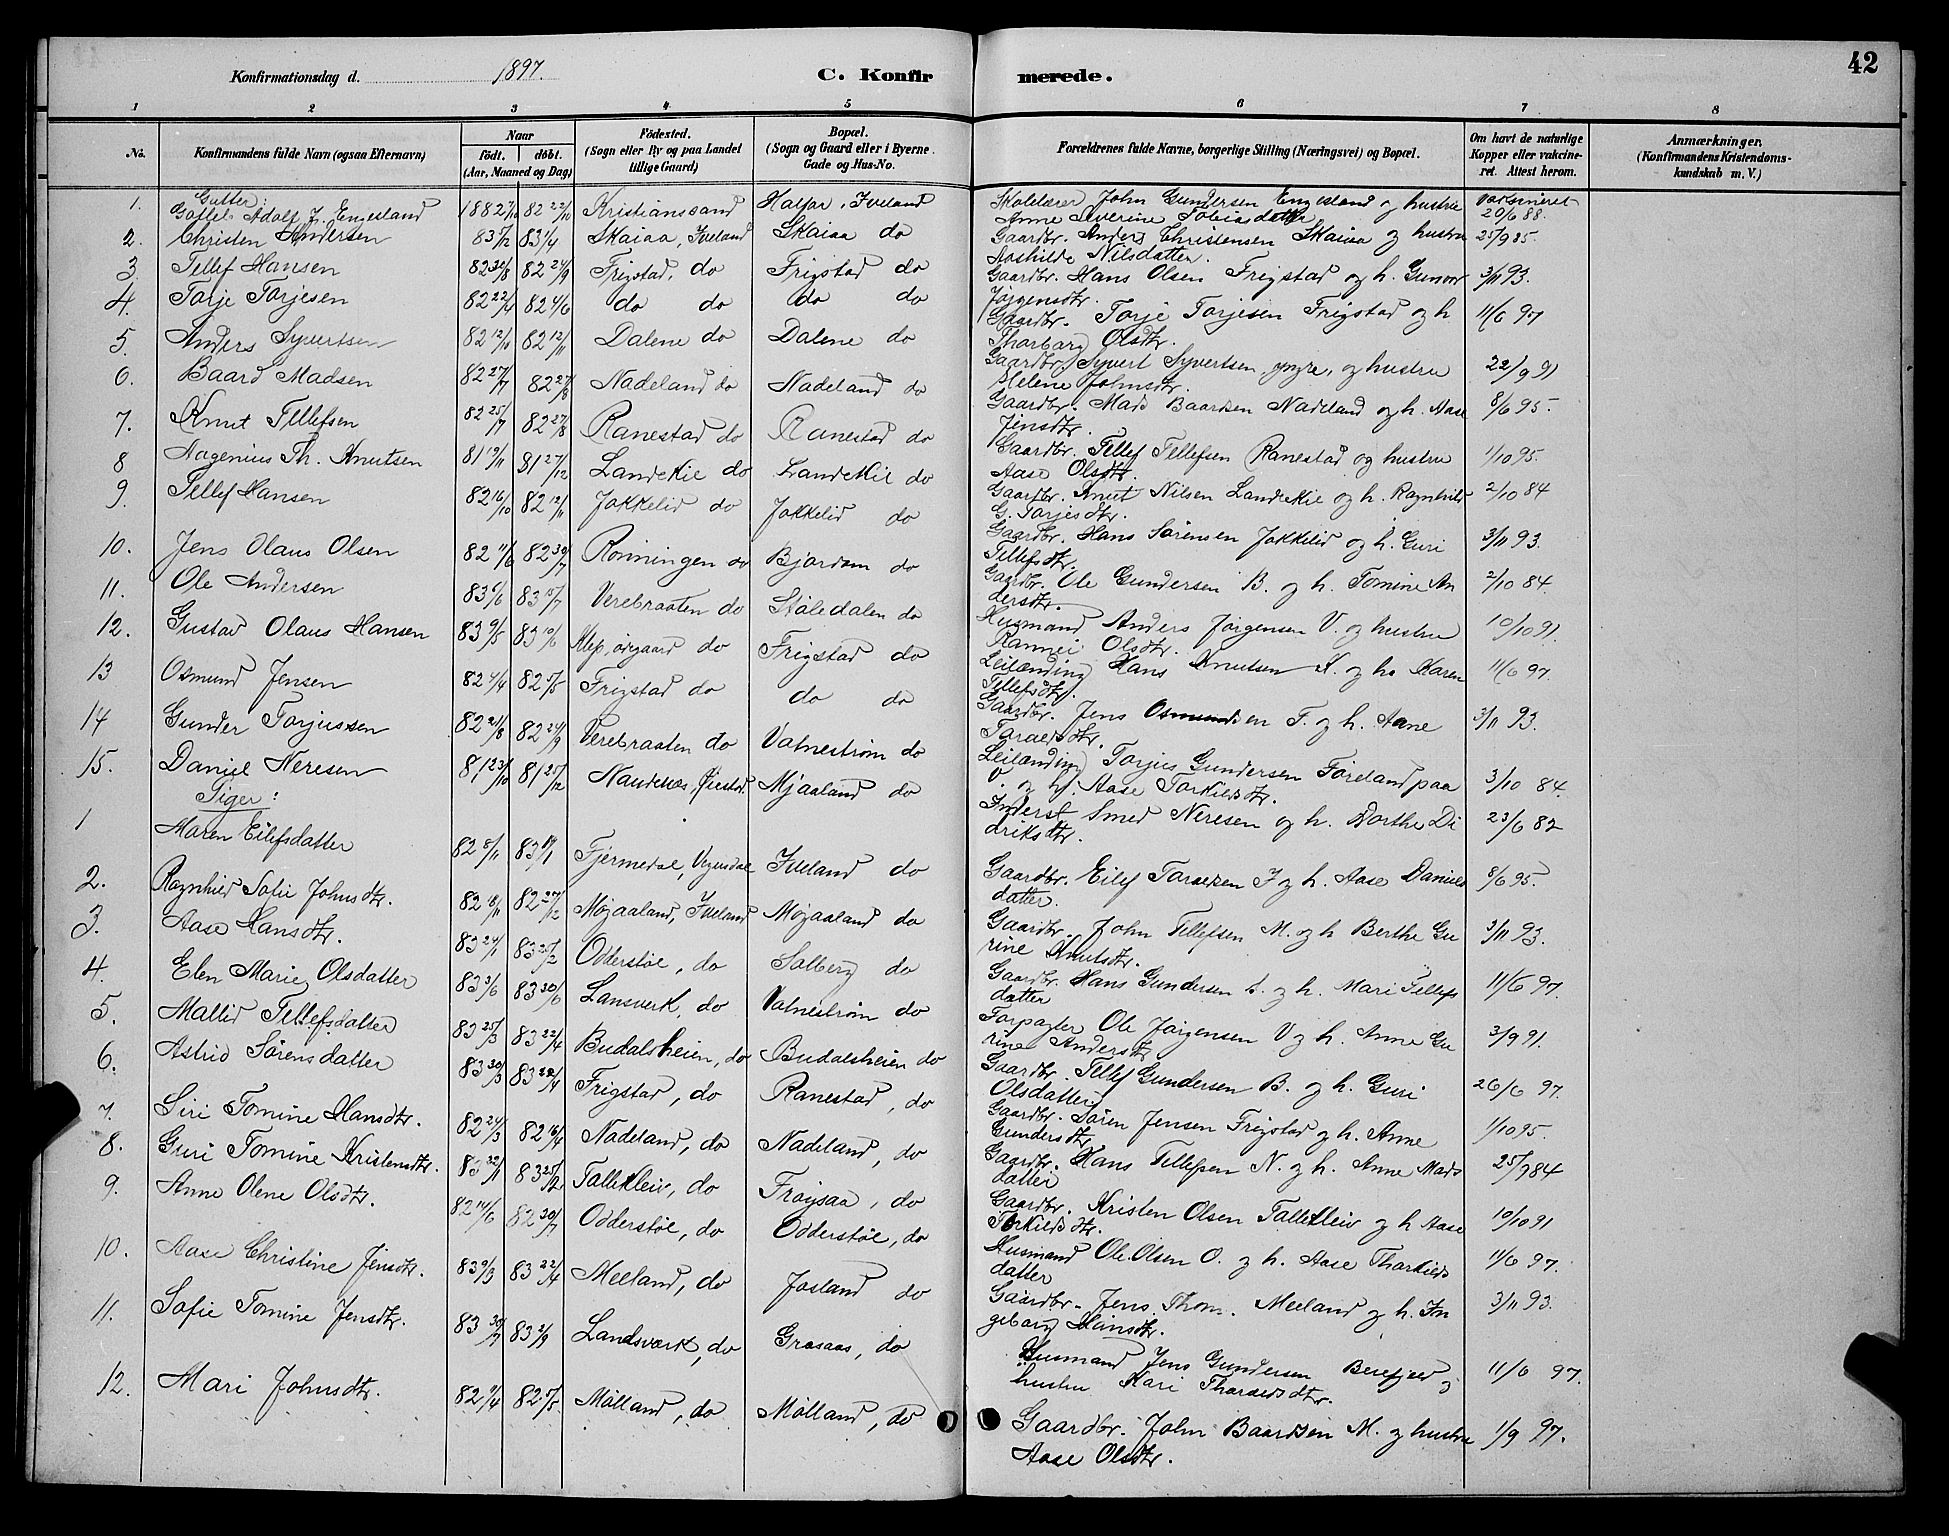 42
Konfirmationsdag d. 1897. C. Konfirmerede.
1 2 3 4 5 6 7 8
No. Konfirmandens fulde Navn (ogsaa Efternavn) Naar født. døbt. (Aar, Maaned og Dag) Fødested. (Sogn eller By og paa Landet tillige Gaard) Bopæl. (Sogn og Gaard eller i Byerne Gade og Hus-No. Forældrenes fulde Navne, borgerlige Stilling (Næringsvei) og Bopæl. Om havt de naturlige Kopper eller vakcineret. Attest herom. Anmærkninger. (Konfirmandens Kristendomskundskab m. V.)
Gutter:
1. Adolf J. Engesland 1882 82 22/10 Kristianssand Iveland Skolelærer John Gundersen Engesland og hustru Anne Severine Tobiasdatter vaksineret 20/6 88.
2. Christen Andersen 83 83 1/4 Skaiaa, Iveland Skaiaa do Gaardbr. Anders Christensen Skaiaa og hustru Aashilde Nilsdatter. 25/9 85.
3. Tellef Hansen 82 30/8 82 24/9 Frigstad, do Frigstad do Gaardbr. Hans Olsen Frigstad og h. Gunvor Jørgensdtr. 3/11 93.
4. Torje Torjesen 82 22/4 82 4/6 do do do do Gaardbr. Torje Torjesen Frigstad og h Thorborg Olsdtr. 11/6 97
5. Anders Syvertsen 82 12/10 82 12/11 Dalene do Dalene do Gaardbr. Syvert Syvertsen, yngre, og hustru Helene Johnsdtr. 22/9 91
6. Baard Madsen 82 27/7 82 27/8 Nadeland do Nadeland do Gaardbr. Mads Baardsen Nadeland og h. Aase Jensdtr. 8/6 95.
7. Knut Tellefsen 82 25/7 82 27/8 Ranestad do Ranestad do Gaardbr. Tellef Tellefsen Ranestad og hustru Aase Olsdtr. 1/10 95.
8 Aagenius Th. Knutsen 81 19/11 81 27/12 Landekie do Landekil do Gaardbr. Knut Nilsen Landekie og h. Ragnhild G. Torjesdtr. 2/10 84
9. Tellef Hansen 82 16/10 82 12/11 Jokkelid do Jokkelid do Gaardbr. Hans Sørensen Jokkelid og h. Guri Tellefsdtr. 3/11 93.
10. Jens Olaus Olsen 82 11/6 82 30/7 Rønningen do Bjørdam do Gaardbr. Ole Gundersen B. og h. Tomine Andersdtr. 2/10 84.
11. Ole Andersen 83 6/6 83 15/7 Verebraaten do Støledalen do Husmand Anders Jørgensen V. og hustru Rannei Olsdtr. 10/10 91.
12. Gustav Olaus Hansen 83 9/5 83 10/6 do Frigstad do Leilænding Hans Knutsen K. og h. Karen Tellefsdtr. 11/6 97.
13 Osmund Jensen 82 4/4 82 Frigstad do do do Gaardbr. Jens Osmundsen F. og h. Aane Taraldsdtr. 3/11 93.
14 Gunder Torjussen 82 21/8 82 24/9 Verebraaten do Vatnestrøm do Leilænding Torjus Gundersen Føreland paa V. og h. Aase Torkildsdtr. 3/10 84.
15. Daniel Neresen 81 23/10 81 25/12 Naudenes, Øiestad Mjaaland do Inderst Smed Neresen og h. Dorthe Didriksdtr. 23/6 82
Piger:
1 Maren Eilefsdatter 82 5/11 83 Fjermedal, Vegusdal Iveland do Gaardbr. Eilef Taraldsen I og h. Aase Danielsdatter. 8/6 95.
2. Ragnhild Sofie Johnsdtr. 82 18/11 82 27/12 Mojaaland, Iveland Mojaaland do Gaardbr. John Tellefsen M. og h Berthe Gurine Knutsdtr. 3/11 93.
3. Aase Hansdtr. 83 24/1 83 25/2 Odderstøe, do Solberg do Gaardbr. Hans Gundersen S. og h. Mari Tellefsdatter 11/6 97.
4. Elen Marie Olsdatter 83 3/6 83 30/6 Lansverk, do Vatnestrøm do Forpagter Ole Jørgensen V og h. Anne Gurine Andersdtr 3/9 91.
5. Mallid Tellefsdatter 83 25/3 83 22/4 Budalsheien, do Budalsheien do Gaardbr. Tellef Gundersen B. og h. Guri Olsdatter 26/6 97.
6. Astrid Sørensdatter 83 30/3 83 22/4 Frigstad, do Ranestad, do Gaardbr. Søren Jensen Frigstad og h. Anne Gundersdtr. 1/10 95.
7. Siri Tomine Hansdtr. 82 24/3 82 16/4 Nadeland, do Nadeland, do Gaardbr. Hans Tellefsen N. og h. Anne Madsdatter 25/9 84
8. Guri Tomine Kristensdtr. 83 22/1 83 25/2 Tallekleiv, do Frøysaa, do Gaardbr. Kristen Olsen Tallekleiv og h Aase Torkildsdtr. 10/10 91
9. Anne Olene Olsdtr. 82 14/6 82 30/7 Odderstøe, do Odderstøe, do Husmand Ole Olsen O. og h. Aase Thorkildsdatter 11/6 97.
10. Aase Christine Jensdtr. 83 9/3 83 22/4 Meeland, do Josland do Gaardbr. Jens Thom. Meeland og h. Ingeborg Hansdtr. 3/11 93.
11. Sofie Tomine Jensdtr. 83 30/7 83 2/9 Landsverk, do Grosaas, do Husmand Jens Gundersen Berefjeld og hustru Kari Tharaldsdtr. 11/6 97.
12. Mari Johnsdtr. 82 9/4 82 Mølland, do Mølland, do Gaardbr. John Baardsen M. og hustru Aase Olsdtr. 1/9 97.